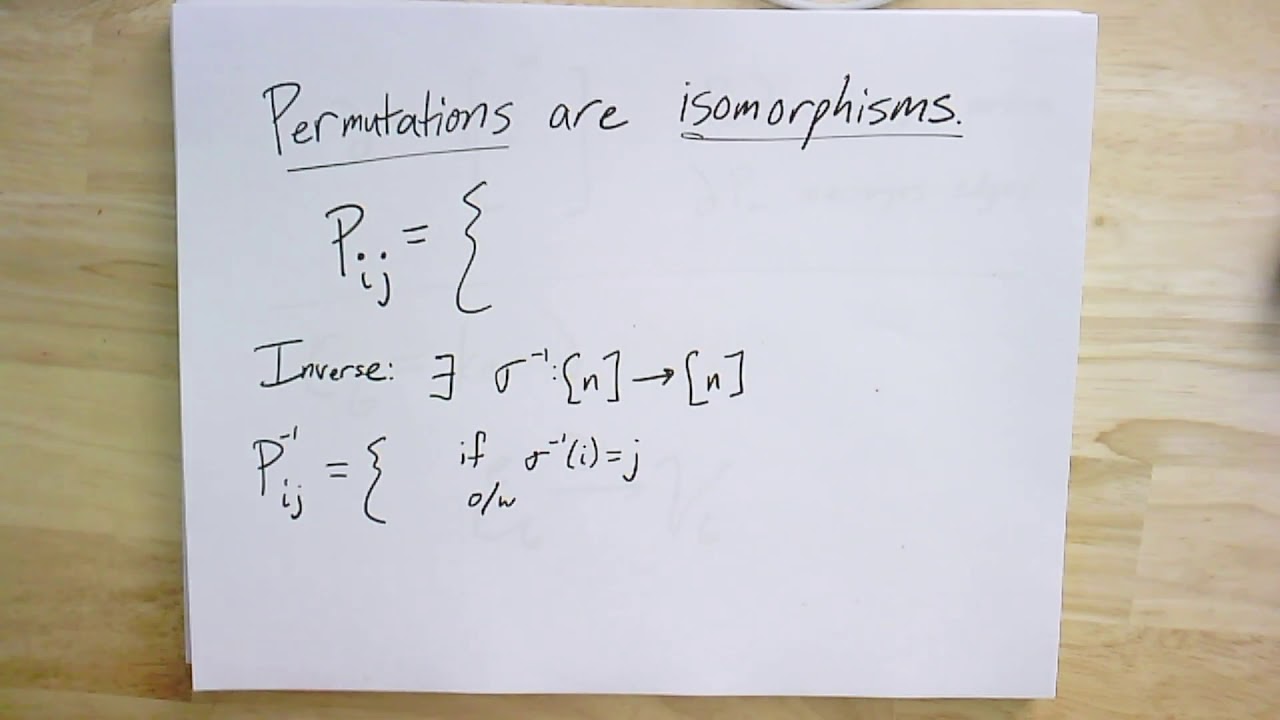 Permutations are isomorphisms.
P_ij = {
Inverse: ∃ σ⁻¹: [n] → [n]
P⁻¹_ij = { if σ⁻¹(i)=j
o/w